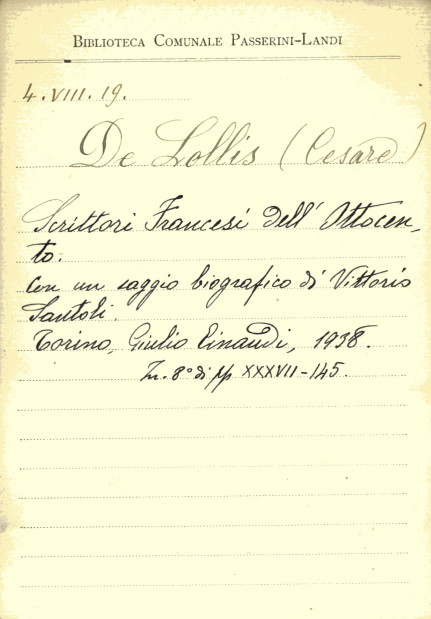 BIBLIOTECA COMUNALE PASSERINI-LANDI
4.VIII.19.
De Lollis (Cesare)
Scrittori Francesi dell'Ottocen-
to.
Con un saggio biografico di Vittorio
Santoli.
Torino, Giulio Einaudi, 1938.
In 8° di pp XXXVII-145.